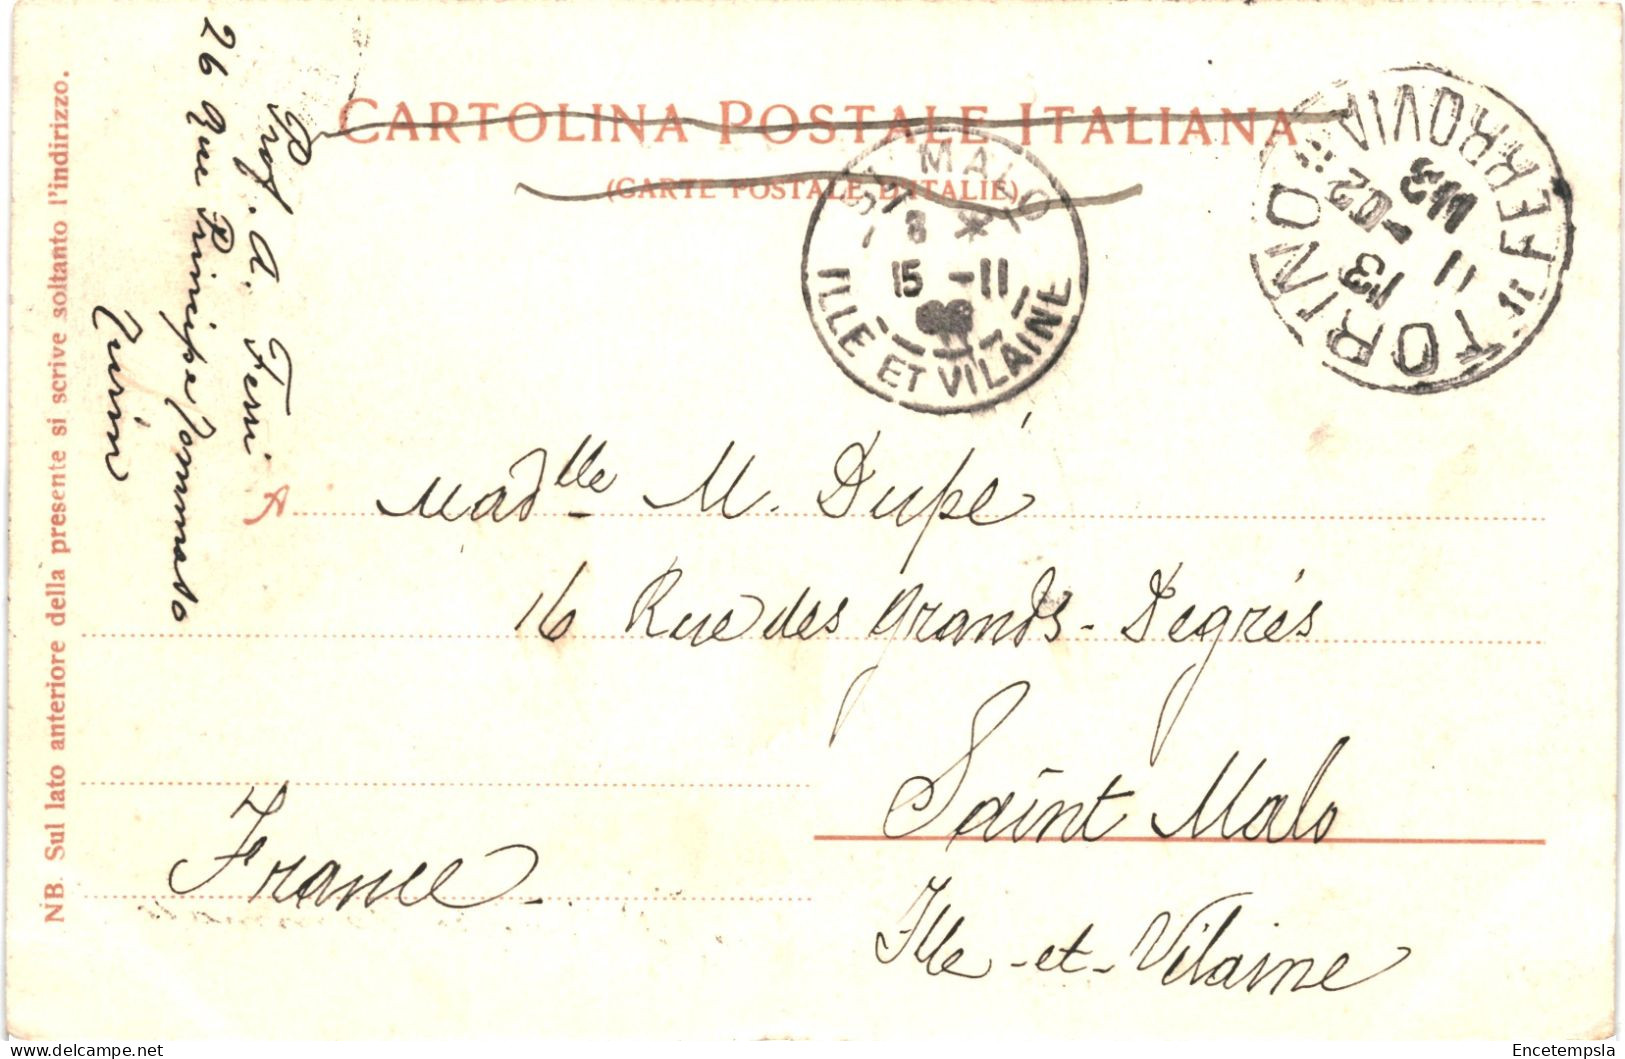 CARTOLINA POSTALE ITALIANA
(CARTE POSTALE D'ITALIE)
NB. Sul lato anteriore della presente si scrive soltanto l'indirizzo.
Prof. A. Ferri
26 Rue Principe Tommaso
Turin
ST MALO
8 *
15 -11
ILLE ET VILAINE
TORINO FERROVIA
13
11
02
A
Madlle M. Dupé
16 Rue des Grands-Degrés
Saint Malo
Ille-et-Vilaine
France
Encetempsla